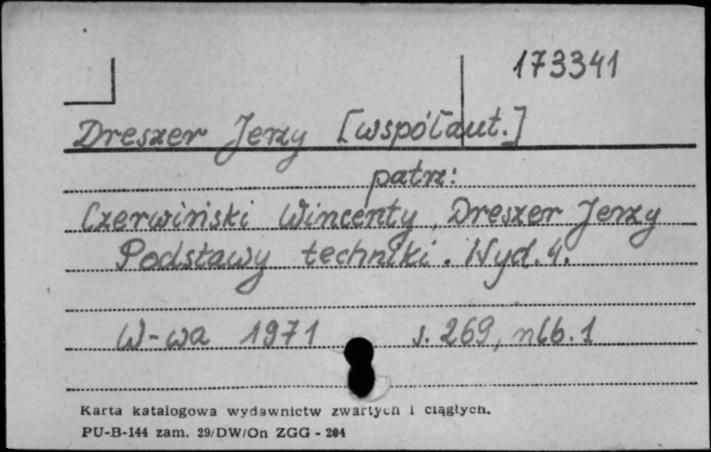 173341
Dreszer Jerzy [współaut.]
patrz:
Czerwiński Wincenty, Dreszer Jerzy
Podstawy techniki. Wyd. 4.
W-wa 1971 s. 269, nlb. 1
Karta katalogowa wydawnictw zwartych i ciągłych.
PU-B-144 zam. 29/DW/On ZGG - 204